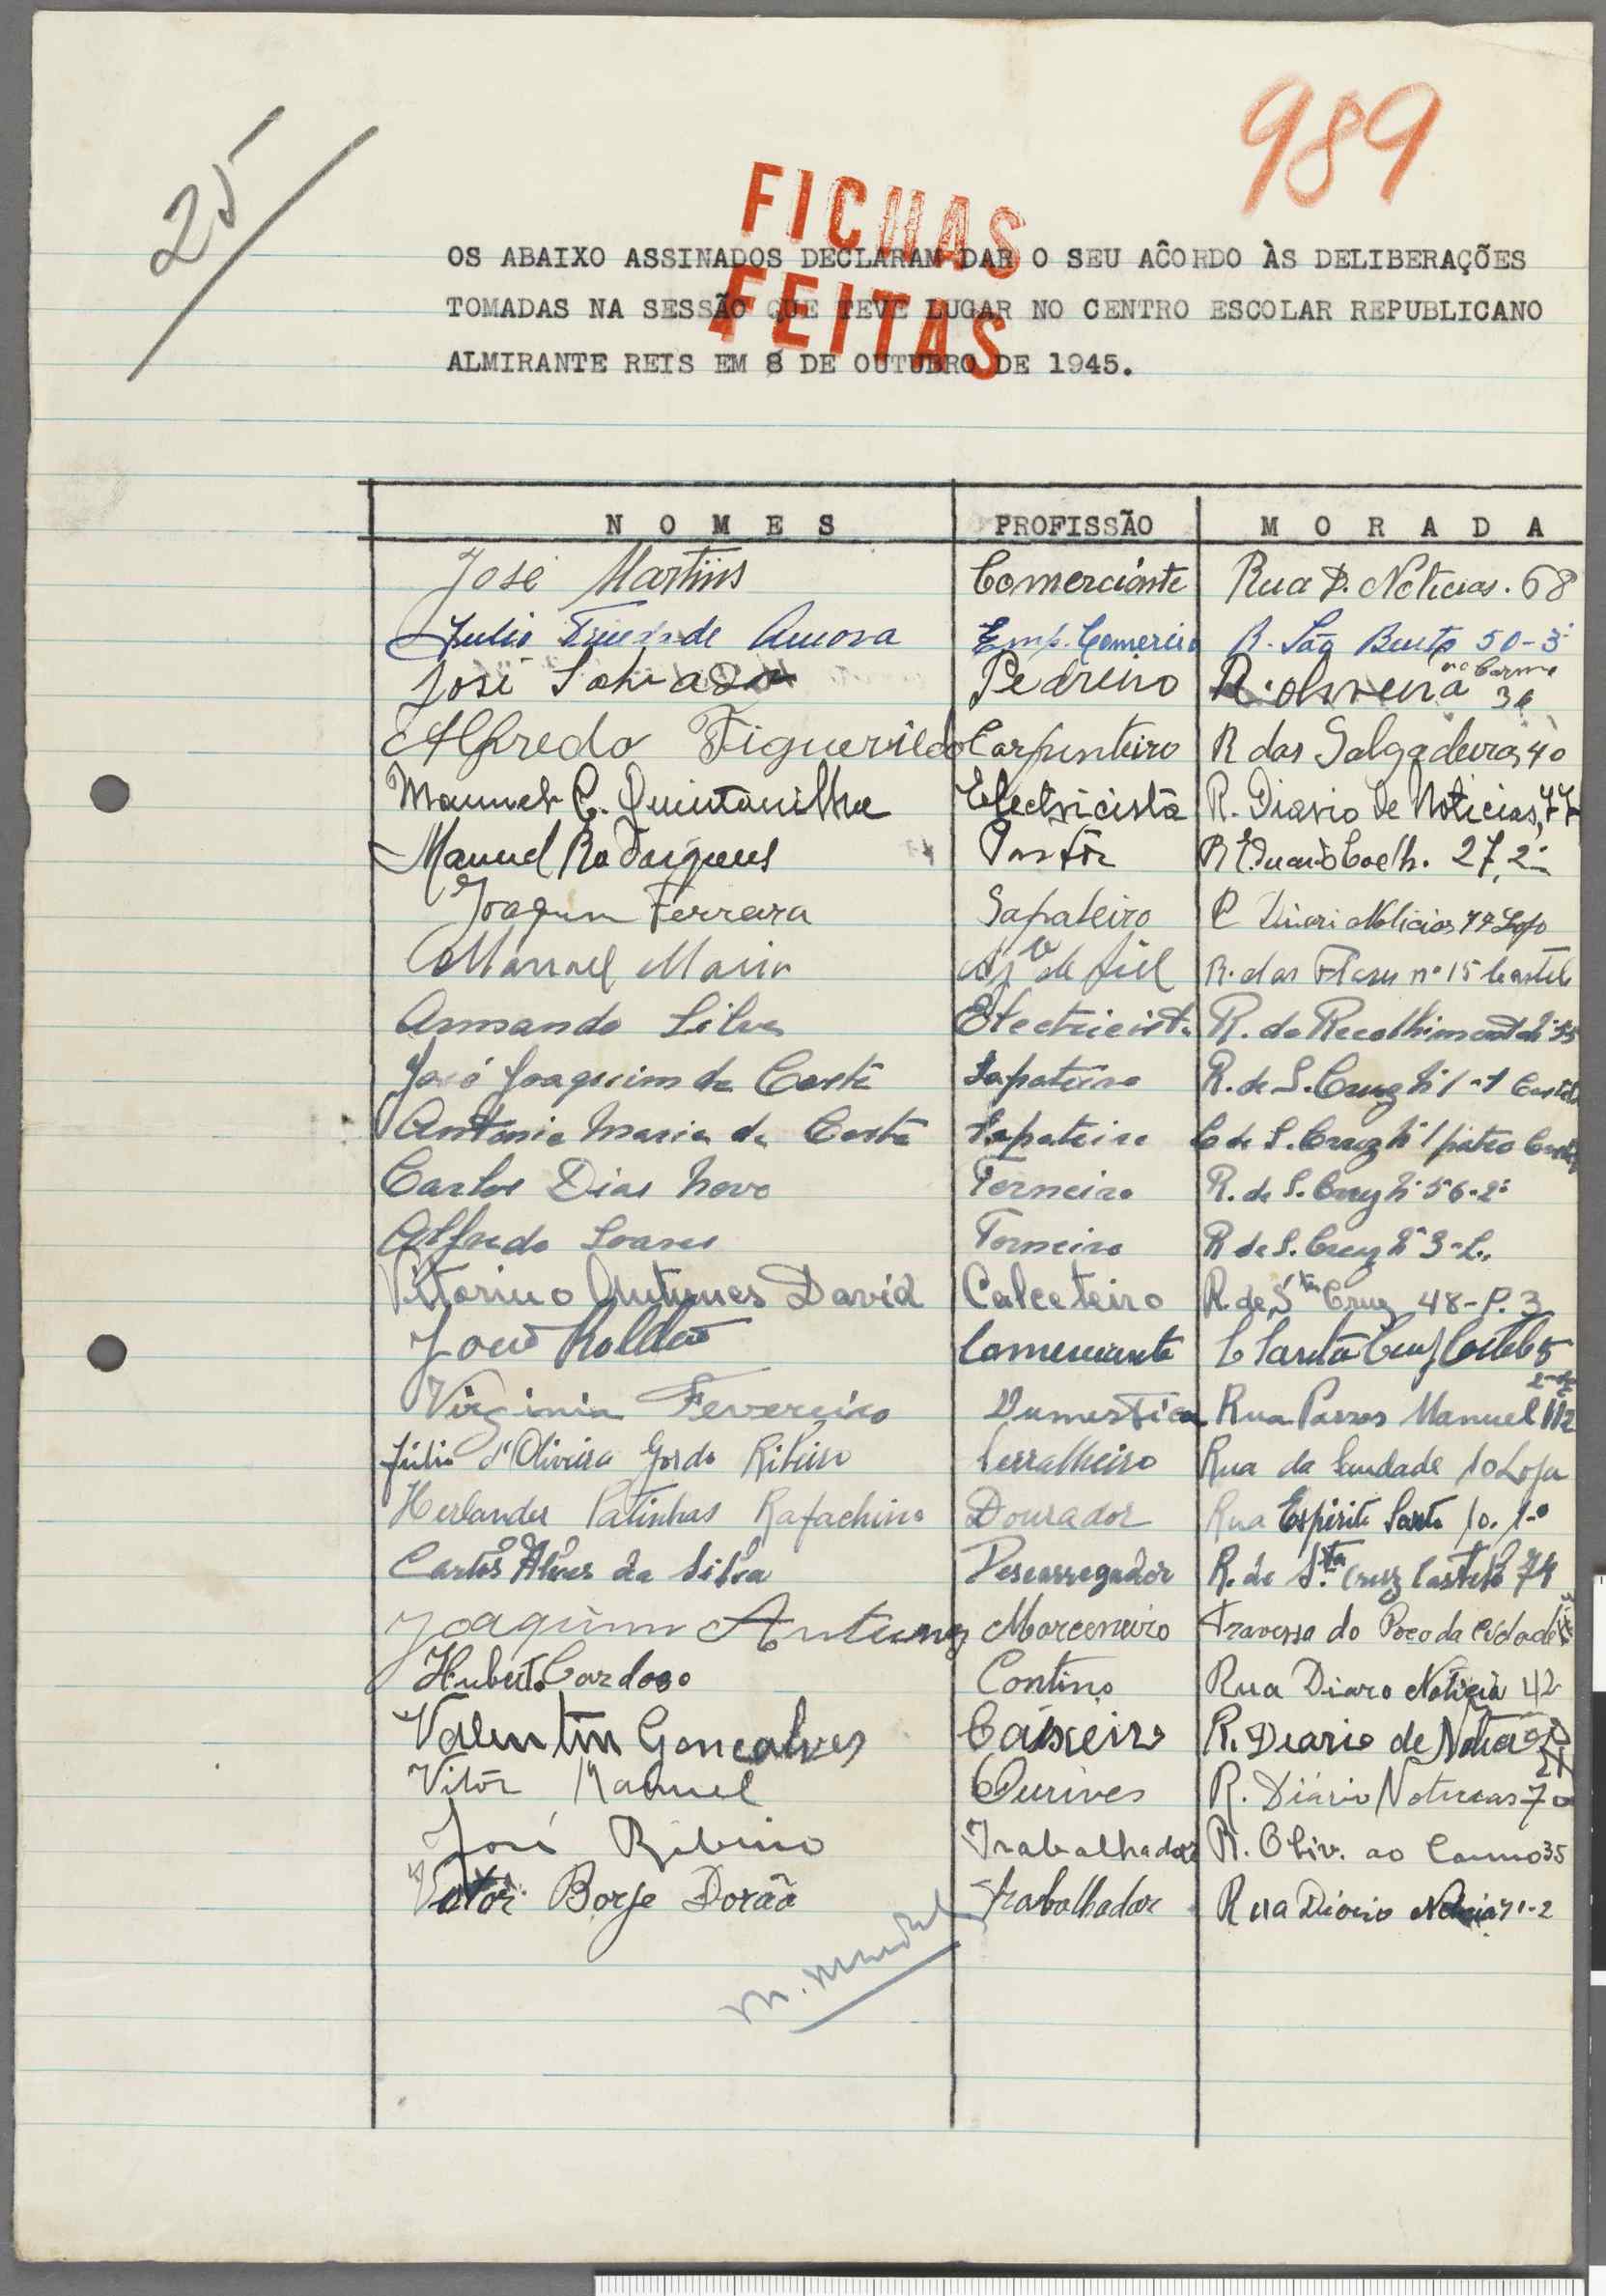 25
989
FICHAS
FEITAS
OS ABAIXO ASSINADOS DECLARAM DAR O SEU ACÔRDO ÀS DELIBERAÇÕES
TOMADAS NA SESSÃO QUE TEVE LUGAR NO CENTRO ESCOLAR REPUBLICANO
ALMIRANTE REIS EM 8 DE OUTUBRO DE 1945.
NOMES PROFISSÃO MORADA
José Martins Comerciante Rua D. Noticias. 68
Julio de Emp. Comercio R. São Bento 50-3º
José Pedreiro R. oliveira ao Carmo 36
Alfredo Figueriledo Carpinteiro R das Salgadeiras, 40
Manuel C. Quintanilha Electricista R. Diario de Noticias, 77
Manuel Rodrigues R Eduardo Coelh. 27, 2º
Joaquim Ferreira Sapateiro Diari Noticias 77 Loja
Manuel de fiel R. das Flores nº 15 Castelo
Armando Silva Electricista R. do Recolhimento
José Joaquim da Costa Sapateiro R. de S. Cruz Nº 1-1 Castelo
Antonio Maria da Costa Sapateiro de S. Cruz Nº 1 páteo
Carlos Dias Novo Torneiro R. de S. Cruz Nº 56-2º
Alfredo Soares Torneiro R de S. Cruz Nº 3-L.
Vitorino Antunes David Calceteiro R. de Sta Cruz 48-P. 3
José Roldão Comerciante Santa Cruz Castelo 5
Virginia Fevereiro Dumestica Rua Passos Manuel 112
Júlio d'Oliveira Gordo Ribeiro Serralheiro Rua da Saudade 10 Loja
Herlander Patinhas Rafachino Dourador Rua Espirito Santo 10. 1º
Carlos Alves da Silva Descarregador R. de Sta Cruz Castelo 74
Joaquim Antunes Marceneiro Travessa do Poco da Cidade
Huberto Cardoso Contino Rua Diaro Noticia 42
Valentin Goncalves Caixeiro R. Diario de
Vitôr Manuel Ourives R. Diário Noticias 70
José Ribeiro Trabalhador R. Oliv. ao Carmo 35
Vitor Borje Dorão trabalhador Rua Diario Noticia 71-2